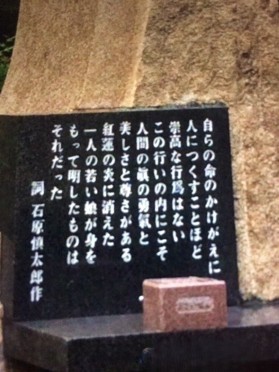 自らの命のかけがえに
人につくすことほど
崇高な行爲はない
この行いの内にこそ
人間の眞の勇氣と
美しさと尊さがある
紅蓮の炎に消えた
一人の若い娘が身を
もって明したものは
それだった
詞 石原慎太郎作